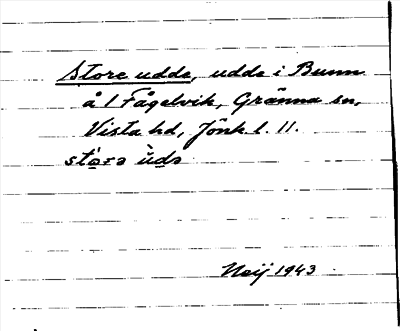 Store udde, udde i Bunn
å 1 Fågelvik, Gränna sn,
Vista hd, Jönk l. 11.
stora uda
Neij 1943